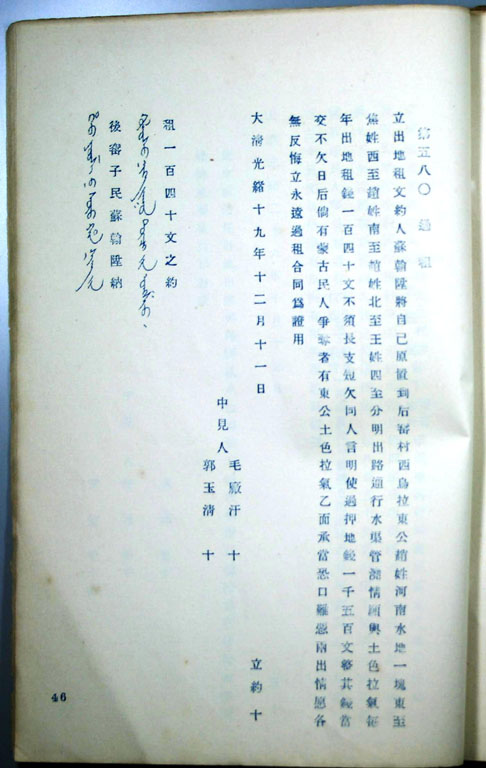 第五八〇　過租
立出地租文約人蘇翰陞將自己原置到后窰村西烏拉東公趙姓河南水地一塊東至
焦姓西至趙姓南至趙姓北至王姓四至分明出路通行水渠管澆情願與土色拉氣每
年出地租錢一百四十文不須長支短欠同人言明使過押地錢一千五百文整其錢當
交不欠日后倘有蒙古民人爭奪者有東公土色拉氣乙面承當恐口難憑兩出情愿各
無反悔立永遠過租合同爲證用
大淸光緖十九年十二月十一日
立約十
中見人
毛廠汗　十
郭玉淸　十
租一百四十文之約
後窰子民蘇翰陞納
46